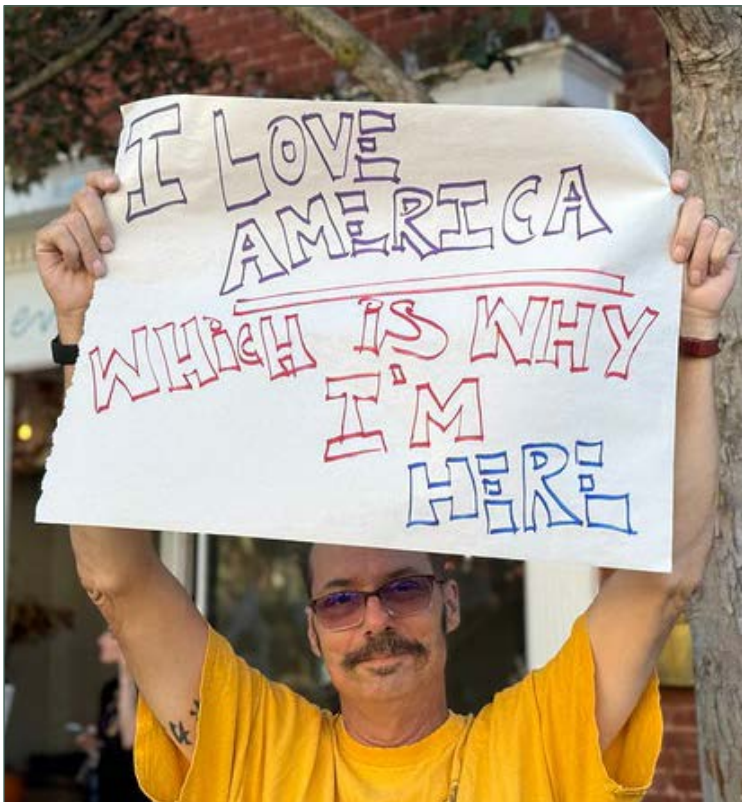 I LOVE
AMERICA
WHiCH iS WHY
I'M
HERE